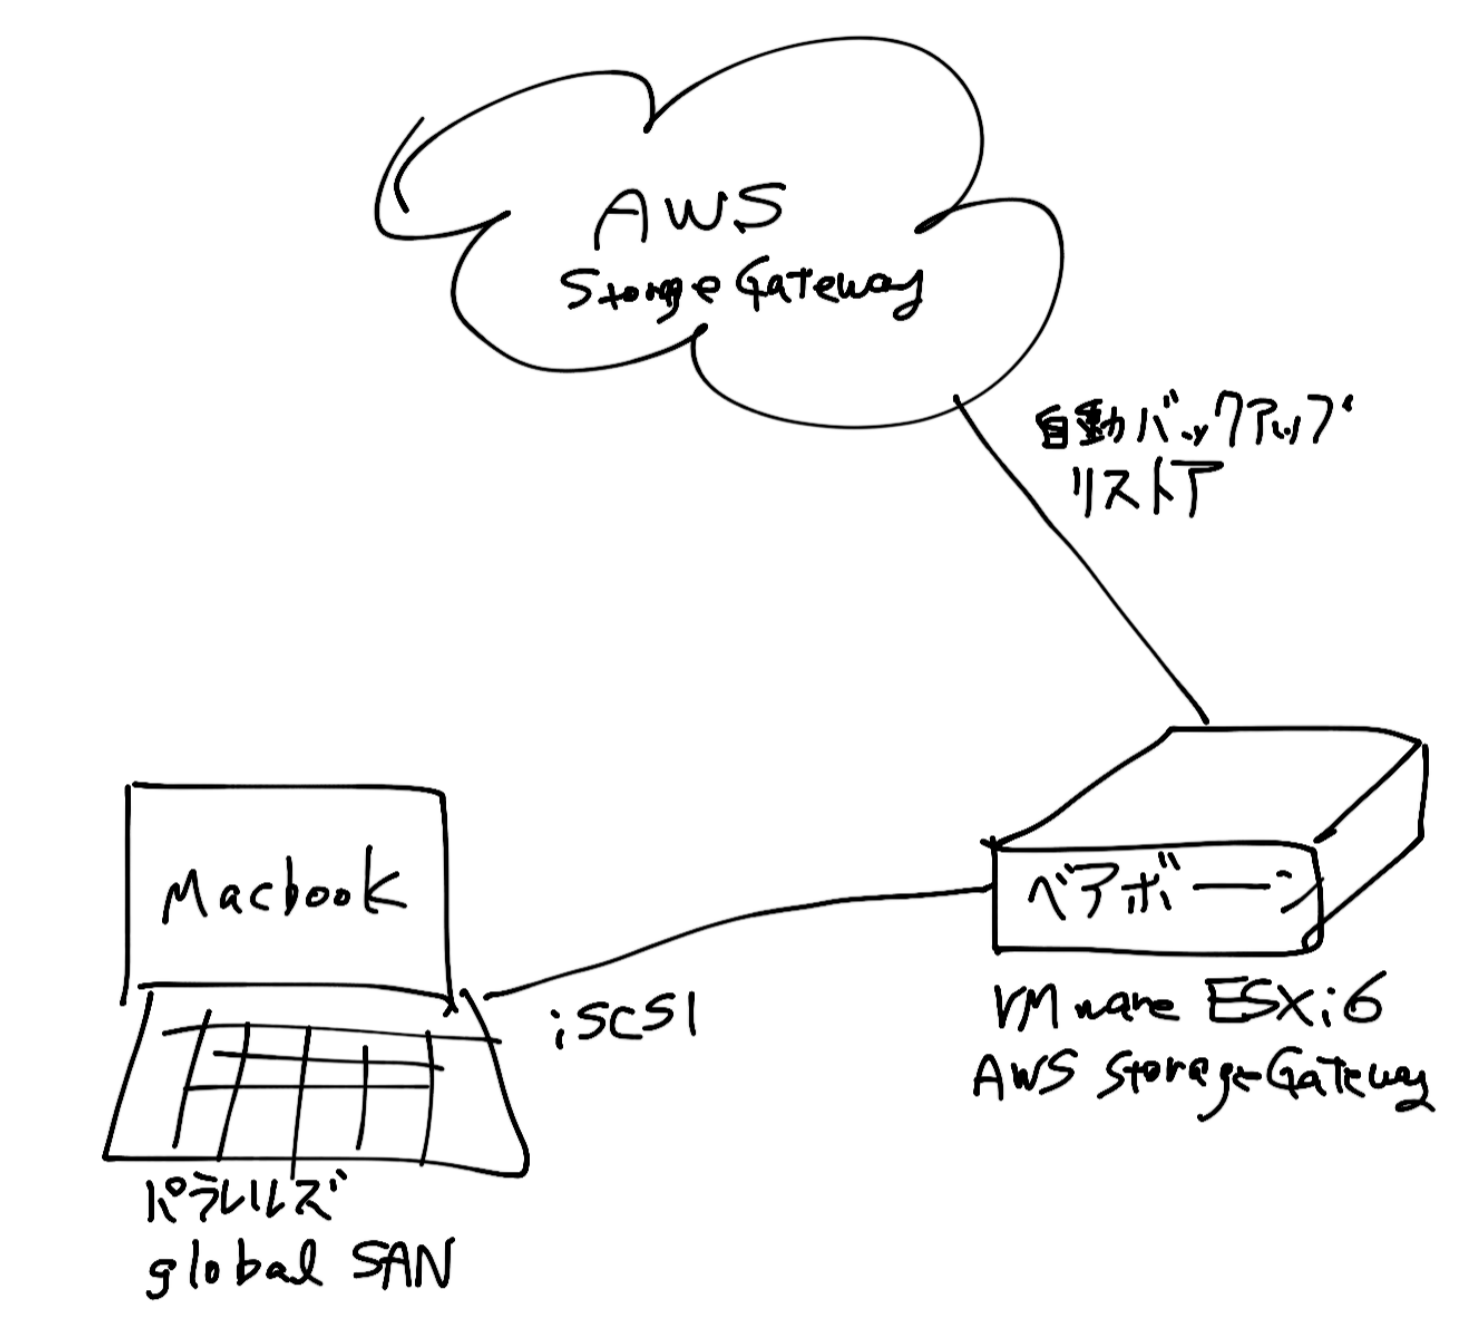 AWS
Storage Gateway
自動バックアップ
リストア
Macbook
ベアボーン
iSCSI
VMware ESXi6
AWS StorageGateway
パラレルズ
global SAN